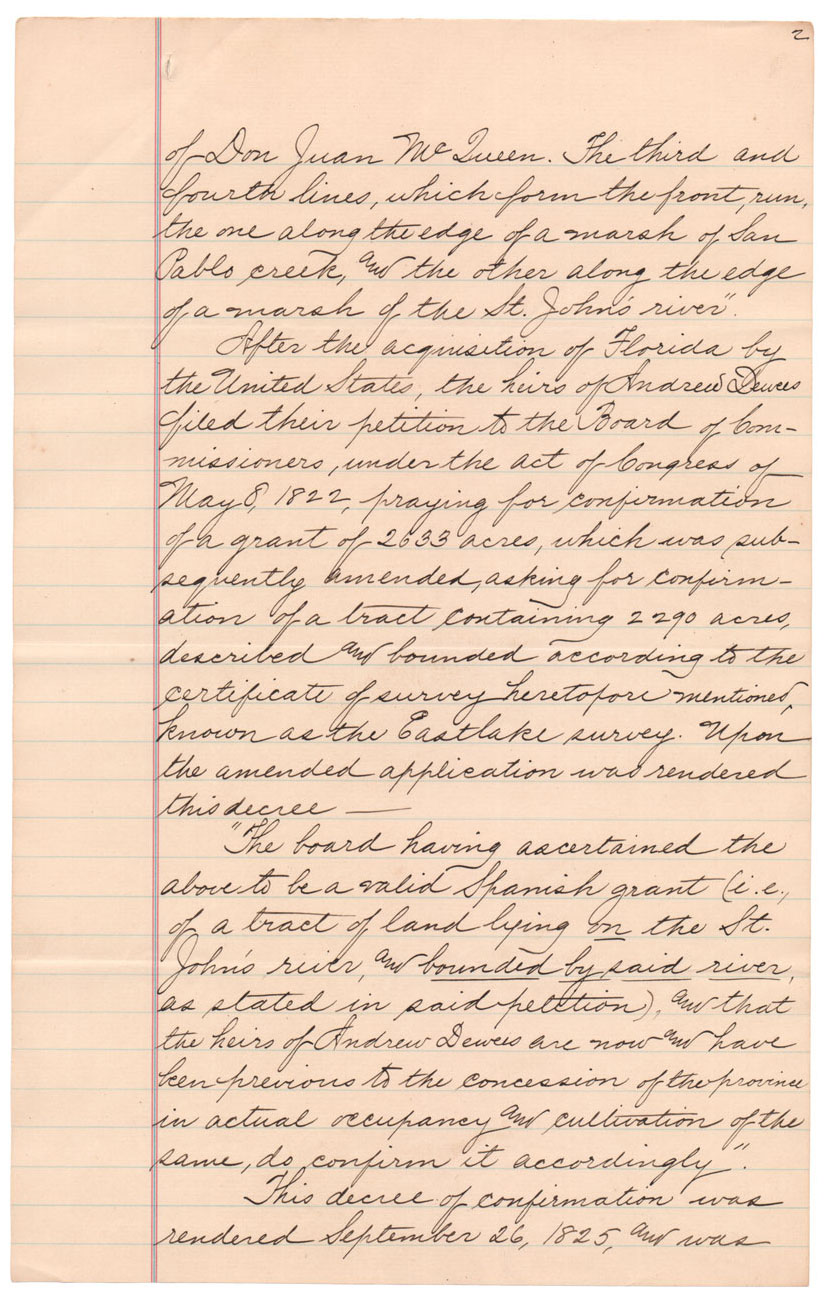 2
of Don Juan McQueen. The third and
fourth lines, which form the front, run,
the one along the edge of a marsh of San
Pablo creek, and the other along the edge
of a marsh of the St. John's river".
After the acquisition of Florida by
the United States, the heirs of Andrew Dewees
filed their petition to the Board of Com-
missioners, under the act of Congress of
May 8, 1822, praying for confirmation
of a grant of 2633 acres, which was sub-
sequently amended, asking for confirm-
ation of a tract containing 2290 acres,
described and bounded according to the
certificate of survey heretofore mentioned,
known as the Eastlake survey. Upon
the amended application was rendered
this decree —
"The board having ascertained the
above to be a valid Spanish grant (i.e.,
of a tract of land lying on the St.
John's river, and bounded by said river,
as stated in said petition), and that
the heirs of Andrew Dewees are now and have
been previous to the concession of the province
in actual occupancy and cultivation of the
same, do confirm it accordingly".
This decree of confirmation was
rendered September 26, 1825, and was